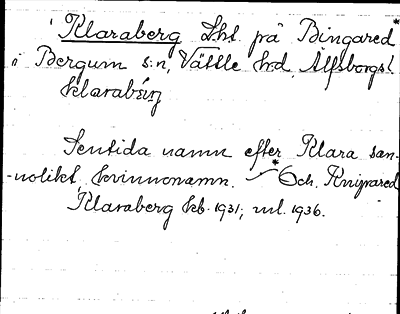 Klaraberg Lht på Bingared*
i Bergum s:n, Vättle hd Älfsborgs l.
klarabærj
Sentida namn efter Klara san-
-nolikt kvinnonamn. *Och Knipared
Klaraberg kb. 1931, ml. 1936.